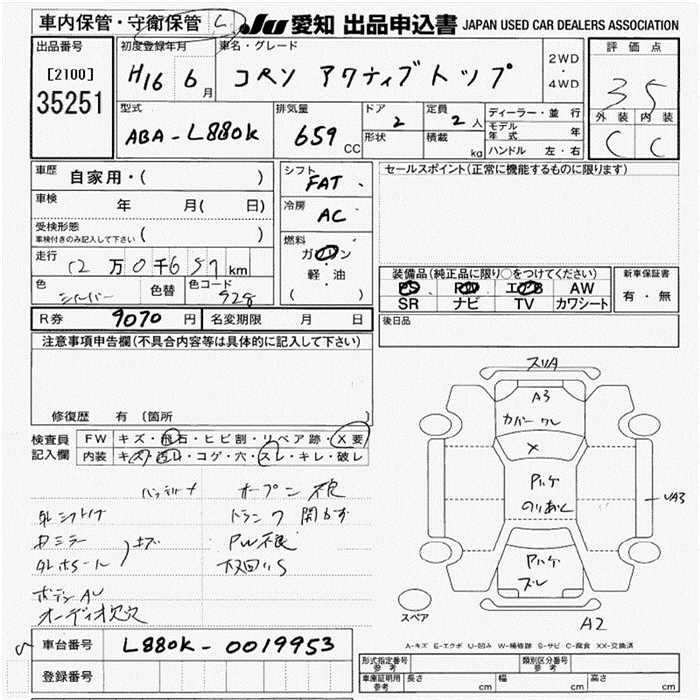 車内保管・守衛保管 し JU 愛知 出品申込書 JAPAN USED CAR DEALERS ASSOCIATION
出品番号 初度登録年月 車名・グレード 評価点
[2100] H16 6月 コペン アクティブトップ 2WD・4WD 3 5
35251 型式 排気量 ドア 定員 ディーラー・並行 外装 内装
ABA-L880K 659cc 2 2人 モデル年式 年 C C
形状 積載 kg ハンドル 左・右
車歴 自家用・( ) シフト FAT セールスポイント(正常に機能するものに限ります)
車検 年 月( 日) 冷房 AC
受検形態 ( )
車検付きのみ記入して下さい
走行 12万0千657km 燃料 ガソリン 軽・油 ( ) 装備品(純正品に限り○をつけてください) 新車保証書
色 シルバー 色替 色コード 928 PS PW エアB AW 有・無
SR ナビ TV カワシート
R券 9070円 名変期限 月 日 後日品
注意事項申告欄(不具合内容等は具体的に記入して下さい)
修復歴 有 [箇所 ]
検査員記入欄 FW キズ・飛石・ヒビ割・リペア跡・X要
内装 キズ・汚れ・コゲ・穴・スレ・キレ・破レ
オープン不良
トランク 開かず
ミラー キズ PW不良
オーディオ欠次
スリA
A3
カバーワレ
X
ハケ
ハケ
ズレ
A3
スペア
A2
A-キズ E-エクボ U-凹み W-補修跡 S-サビ C-腐食 XX-交換済
車台番号 L880K-0019953
登録番号
形式指定番号 参考 類別区分番号 参考
車庫証明用 参考 長さ cm 幅 cm 高さ cm